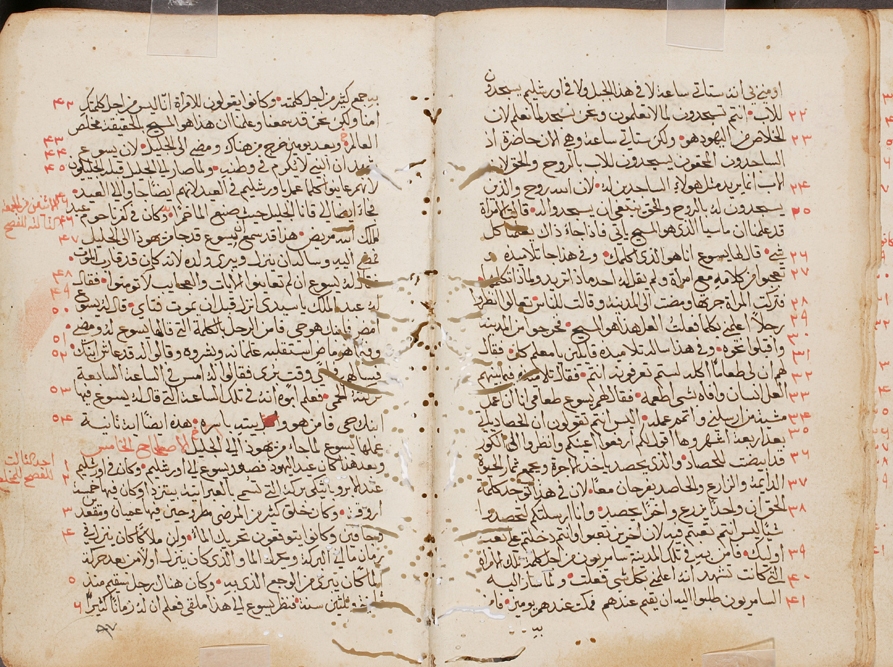 اومني لي انه ستاتي ساعة لا في هذا الجبل ولا في اورشليم يسجدون
٢٢ للاب انتم تسجدون لما لا تعلمون ونحن نسجد لما نعلم لان
٢٣ الخلاص من اليهود هو ولكن ستاتي ساعة وهي الان حاضرة اذ
الساجدون المحقون يسجدون للاب بالروح والحق لان
٢٤ الاب انما يريد مثل هولاء الساجدين له لان الله روح والذين
٢٥ يسجدون له بالروح والحق ينبغي ان يسجدوا له قالت المراة
قد علمنا ان ماسيا الذي هو المسيح ياتي فاذا جاء ذاك يعلمنا كل
٢٦ شي قال لها يسوع انا هو الذي اكلمك وفي هذا جا تلاميذه و
٢٧ تعجبوا من كلامه مع امراة ولم يقل له احد ماذا تريد وماذا تكلمها
٢٨ فتركت المراة جرتها ومضت الى المدينة وقالت للناس تعالوا انظروا
٢٩ رجلا اعلمني كلما فعلت لعل هذا هو المسيح فخرجوا من المدينة
٣٠ واقبلوا نحوه وفي هذا ساله تلاميذه قائلين يا معلم كل فقال
٣٢ هم ان لي طعاما اكله لستم تعرفونه انتم فقال تلاميذه فيما بينهم
٣٣ لعل انسان وافاه بشي اطعمه فقال لهم يسوع طعامي انا ان اعمل
٣٤ مشية من ارسلني واتم عمله اليس انتم تقولون ان الحصاد ياتي
٣٥ بعد اربعة اشهر وها اقول لكم ارفعوا اعينكم وانظروا الى الكور
٣٦ قد ابيضت للحصاد والذي يحصد ياخذ اجرة ويجمع ثمار الحيوة
٣٧ الدايمة والزارع والحاصد يفرحان معا لان في هذا توجد كلمة
٣٨ الحق ان واحد يزرع واخر يحصد وانا ارسلتكم لتحصدوا
شيا ليس انتم تعبتم فيه لان اخرين تعبوا وانتم دخلتم على تعب
٣٩ اوليك فامن به في تلك المدينة سامريون من اجل كلمة تلك المراة
٤٠ التي كانت تشهد انه اعلمني بكل شي فعلت ولما سار اليه
٤١ السامريون طلبوا اليه ان يقيم عندهم فمكث عندهم يومين فامن
به جمع كثير من اجل كلمته وكانوا يقولون للامراة انا ليس من اجل كلمتك ٤٢
امنا ولكن نحن قد سمعنا وعلمنا ان هذا هو المسيح بالحقيقة مخلص
العالم وبعد يومين خرج من هناك ومضى الى الجليل لان يسوع ٤٣ ٤٤
شهد ان النبي لا يكرم في وطنه ولما صار الى الجليل قبله الجليليون ٤٥
لانهم عاينوا كلما عمل اورشليم في العيد لانهم ايضا اتوا الى العيد
فجاء ايضا الى قانا الجليل حيث صنع الماء خمرا وكان في كفرناحوم عبد ٤٦
لملك ابنه مريض هذا قد سمع ان يسوع قد جا من يهوذا الى الجليل ٤٧
فمضى اليه وساله ان ينزل ويبري ولده لانه كان قد قارب الموت
فقال له يسوع ان لم تعاينوا الايات والعجايب لا تومنوا فقال ٤٨ ٤٩
له عبد الملك يا سيدي انزل قبل ان يموت فتاي قال له يسوع ٥٠
امضى فابنك هو حي فامن الرجل بالكلمة التي قالها يسوع له ومضى
وفيما هو ماض استقبله غلمانه وبشروه وقالوا له قد عاش ابنك ٥١
فسالهم في اي وقت برى فقالوا له امس في الساعة السابعة ٥٢
تركته الحمى فعلم ابوه انه في تلك الساعة التي قال له يسوع فيها ٥٣
ابنك حي فامن هو واهل بيته باسره هذه ايضا اية ثانية ٥٤
عملها يسوع لما جا من يهوذا الى الجليل الاصحاح الخامس
وبعد هذا كان عيد اليهود فصعد يسوع الى اورشليم وكان في اورشليم ١ ٢
عند الابروباتيكي بركة التي تسمى بالعبرانية بيتزدا وكان فيها خمسة
اروقة وكان خلق كثير من المرضى مطروحين فيها عميان ومقعد ٣
وجافين وكانوا يتوقعون تحريك الماء ولان ملاكا كان ينزل في ٤
زمان الى البركة ويحرك الماء والذي كان ينزل اولا من بعد حركة
الماء كان يبرى من الوجع الذي به وكان هناك رجل سقيم منذ ٥
ثمانية وثلثين سنة فنظر يسوع الى هذا ملقى فعلم ان له زمانا كثيرا ٦